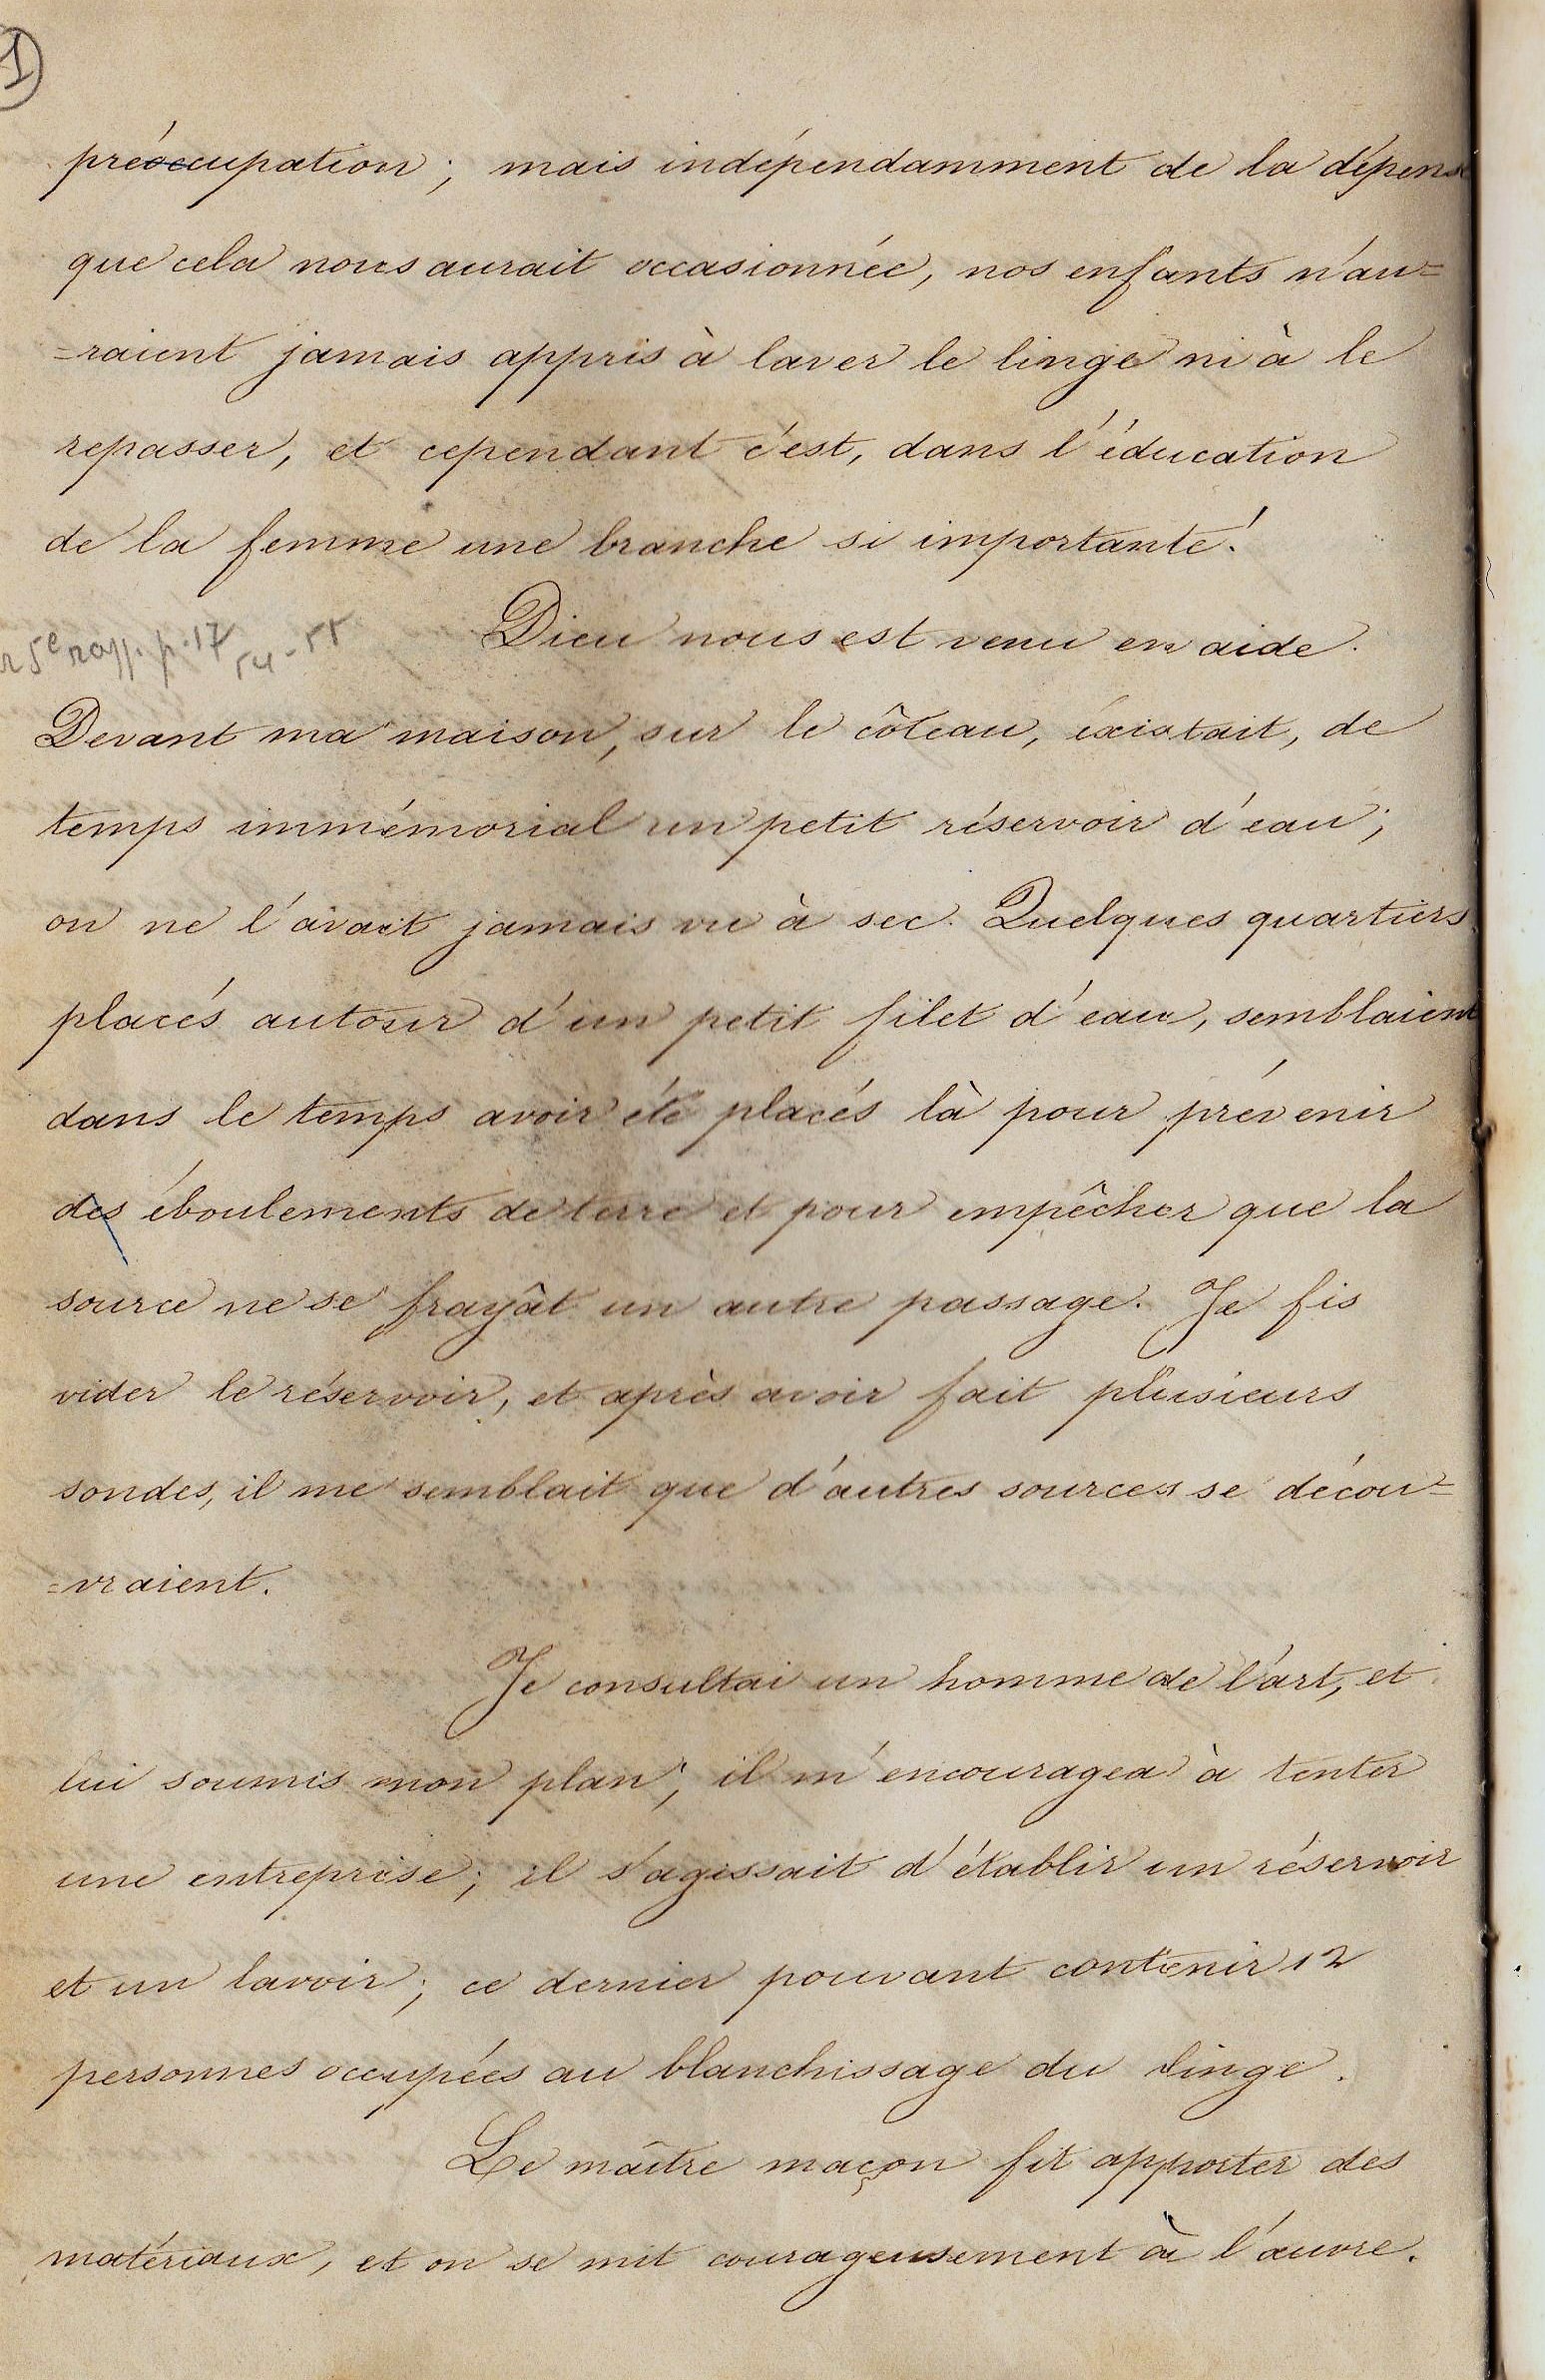 1
préoccupation ; mais indépendamment de la dépense
que cela nous aurait occasionnée, nos enfants n'au=
=raient jamais appris à laver le linge ni à le
repasser, et cependant c'est, dans l'éducation
de la femme une branche si importante !
Dieu nous est venu en aide.
5e rapp. p. 17 54-55
Devant ma maison, sur le côteau, éxistait, de
temps immémorial un petit réservoir d'eau ;
on ne l'avait jamais vu à sec. Quelques quartiers
placés autour d'un petit filet d'eau, semblaient
dans le temps avoir été placés là pour prévenir
des éboulements de terre et pour empêcher que la
source ne se frayât un autre passage. Je fis
vider le réservoir, et après avoir fait plusieurs
sondes, il me semblait que d'autres sources se décou=
=vraient.
Je consultai un homme de l'art, et
lui soumis mon plan ; il m'encouragea à tenter
une entreprise ; il s'agissait d'établir un réservoir
et un lavoir ; ce dernier pouvant contenir 12
personnes occupées au blanchissage du linge.
Le maître maçon fit apporter des
matériaux, et on se mit courageusement à l'œuvre.